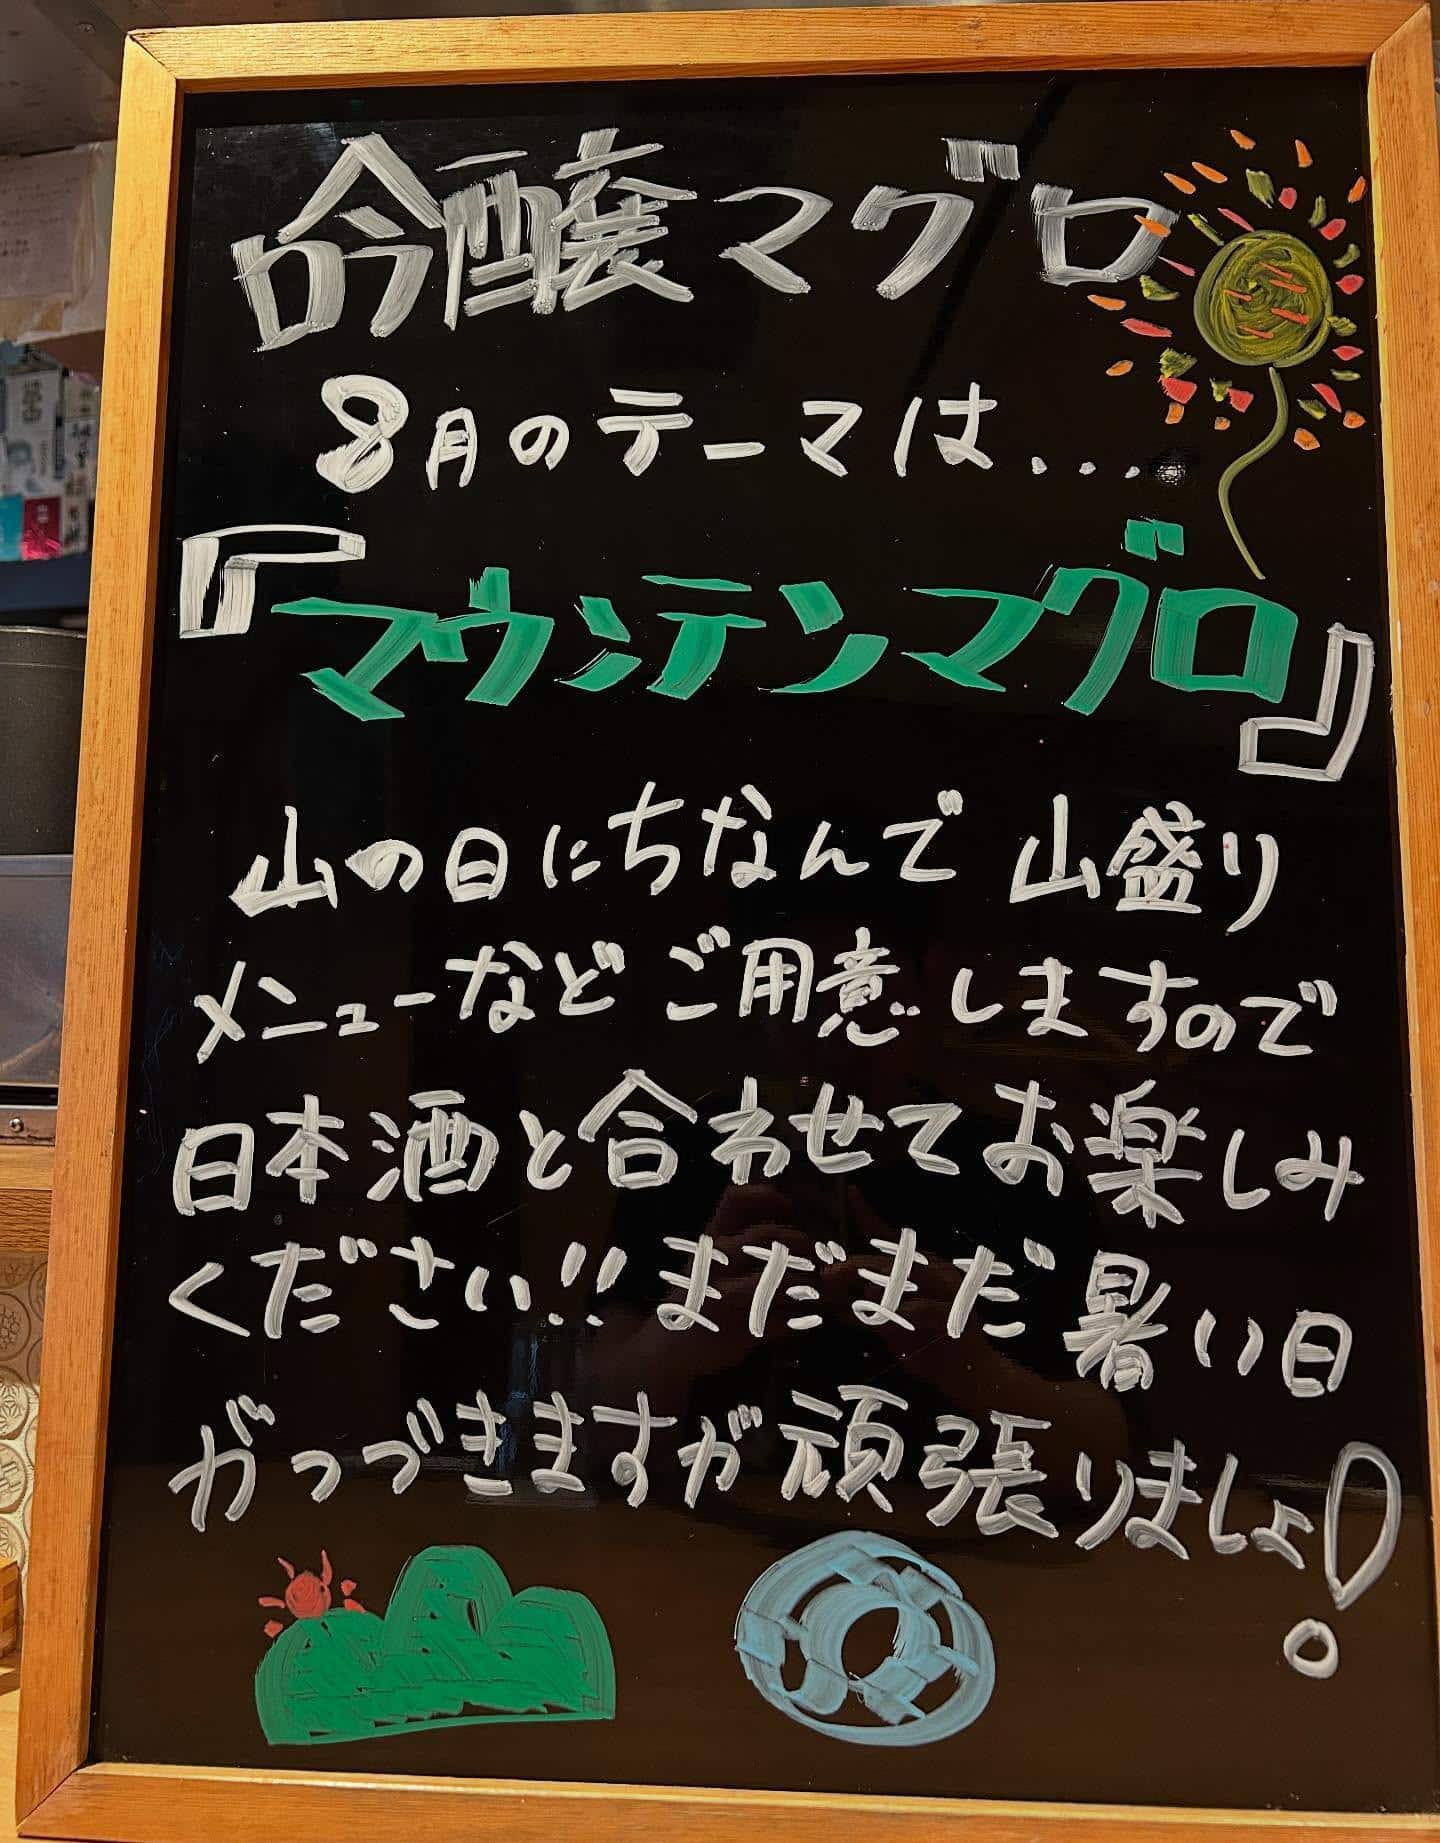 吟醸マグロ
8月のテーマは...
『マウンテンマグロ』
山の日にちなんで山盛り
メニューなどご用意しますので
日本酒と合わせてお楽しみ
ください!!まだまだ暑い日
がつづきますが頑張りましょ!